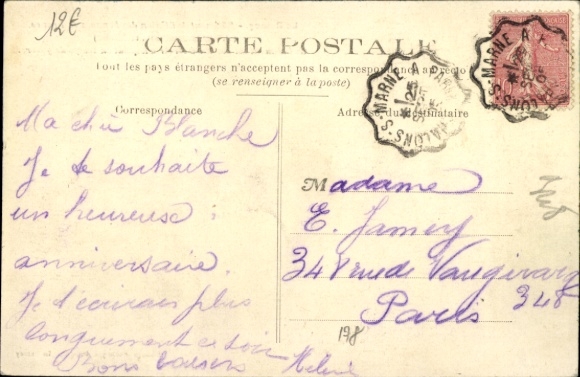 12€
CARTE POSTALE
Tout les pays étrangers n'acceptent pas la correspondance au recto
(se renseigner à la poste)
Correspondance
Adresse du destinataire
MARNE A PARIS CHALONS-S-
MARNE A CHALONS-S-
Ma chère Blanche
Je te souhaite
un heureuse
anniversaire.
Je t'écrirais plus
longuement ce soir
Bons baisers Hélène
Madame
E. Jamey
348 rue de Vaugirard
Paris 348
198